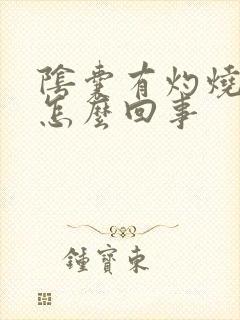 陰囊有灼燒
怎麼回事
鍾寶東